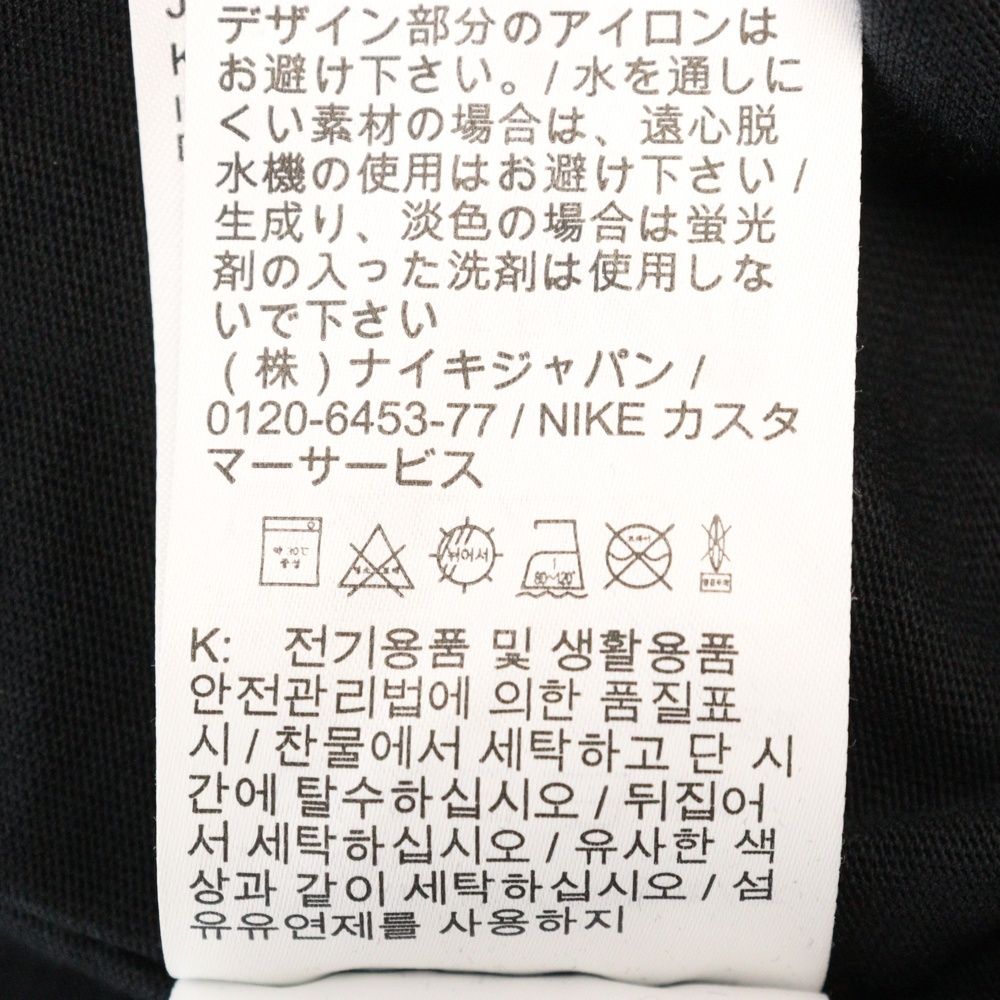 デザイン部分のアイロンは
お避け下さい。/ 水を通しに
くい素材の場合は、遠心脱
水機の使用はお避け下さい /
生成り、淡色の場合は蛍光
剤の入った洗剤は使用しな
いで下さい
(株) ナイキジャパン /
0120-6453-77 / NIKE カスタ
マーサービス
뉘어서
80~120°
K: 전기용품 및 생활용품
안전관리법에 의한 품질표
시 / 찬물에서 세탁하고 단 시
간에 탈수하십시오 / 뒤집어
서 세탁하십시오 / 유사한 색
상과 같이 세탁하십시오 / 섬
유유연제를 사용하지